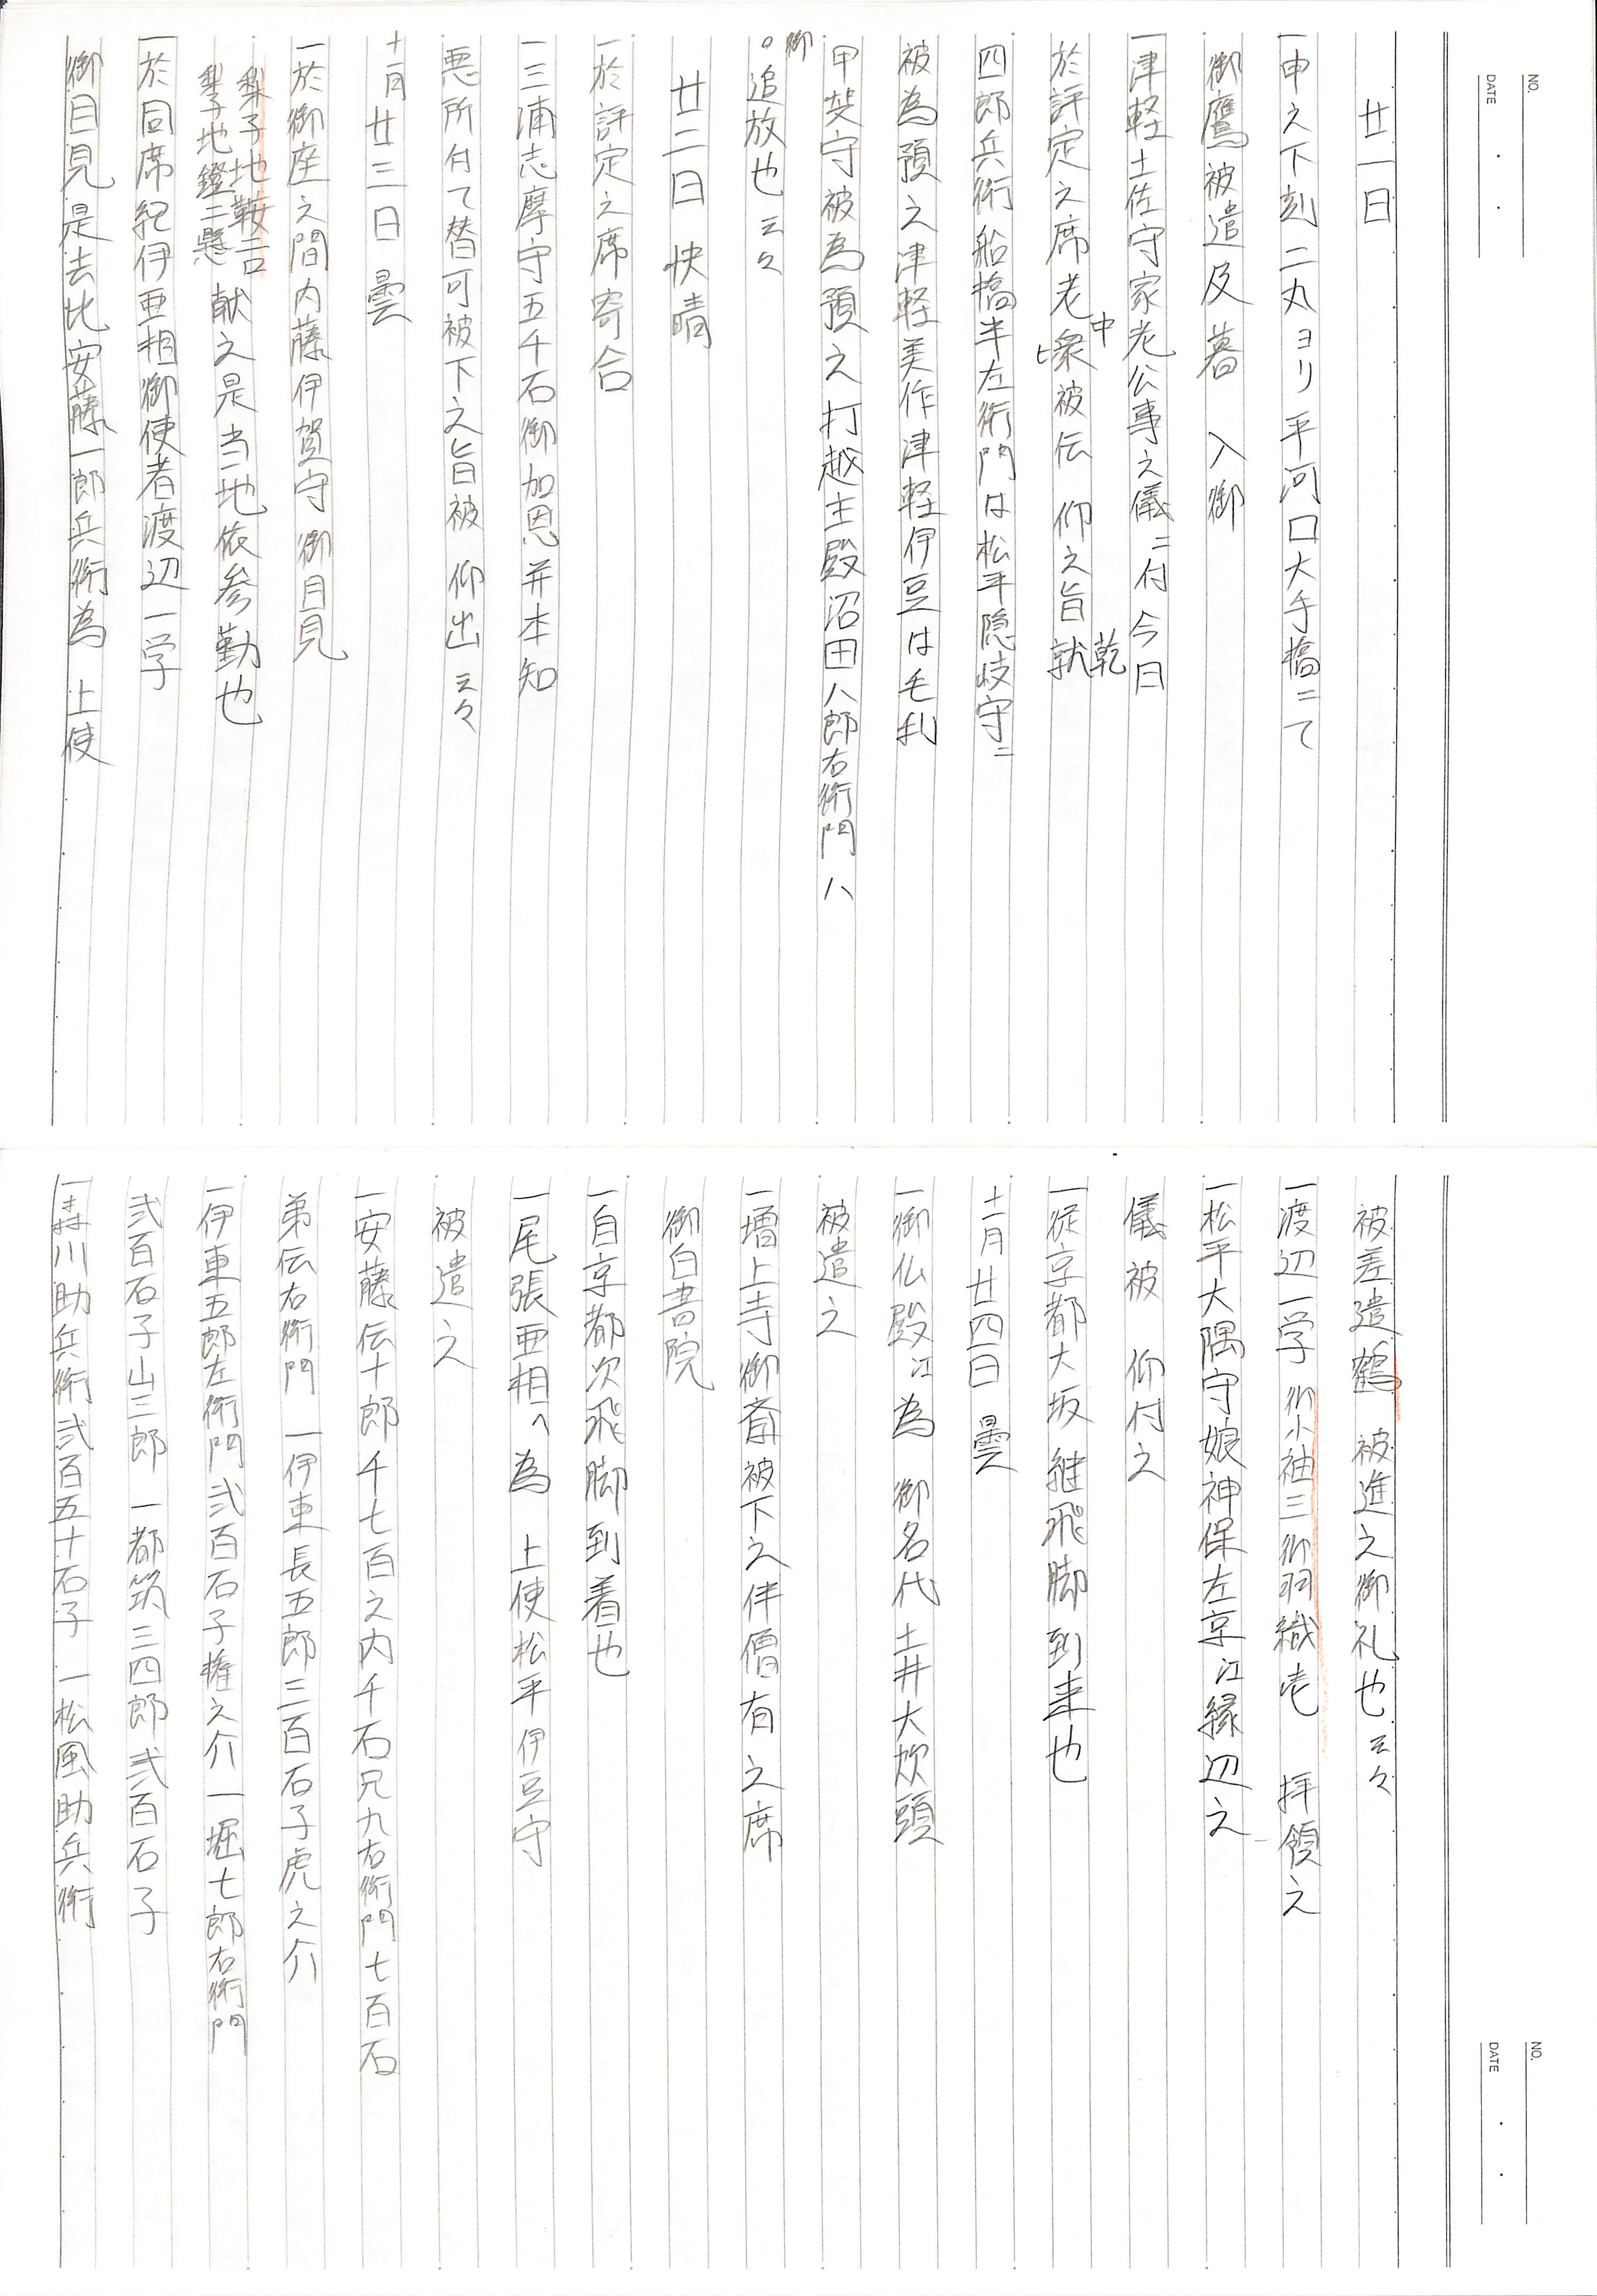 NO.
DATE
廿一日
一申之下刻二丸ヨリ平河口大手橋ニて
御鷹被遣及暮 入御
一津軽土佐守家老公事之儀ニ付今日
於評定之席老衆被伝 仰之旨就
中
ヒ
乾
四郎兵衛船橋半左衛門は松平隠岐守ニ
被為預之津軽美作津軽伊豆は毛利
甲斐守被為預之打越主殿沼田八郎右衛門ハ
御
○追放也云々
廿二日 快晴
一於評定之席寄合
一三浦志摩守五千石御加恩并本知
悪所付て替可被下之旨被 仰出云々
十一月廿三日 曇
一於御座之間内藤伊賀守御目見
梨子地鞍二口
梨子地鐙二懸 献之是当地依参勤也
一於同席紀伊亜相御使者渡辺一学
御目見是去比安藤一郎兵衛為 上使
NO.
DATE
被差遣鶴 被進之御礼也云々
一渡辺一学御小袖三御羽織壱 拝領之
一松平大隅守娘神保左京江縁辺之
儀被 仰付之
一従京都大坂継飛脚到来也
十一月廿四日 曇
一御仏殿江為 御名代土井大炊頭
被遣之
一増上寺御斎被下之伴僧有之席
御白書院
一自京都次飛脚到着也
一尾張亜相へ為 上使松平伊豆守
被遣之
一安藤伝十郎千七百之内千石兄九右衛門七百石
弟伝右衛門 一伊東長五郎三百石子虎之介
一伊東五郎左衛門弐百石子権之介一堀七郎右衛門
弐百石子山三郎 一都筑三四郎弐百石子
一森川助兵衛弐百五十石子 一松風助兵衛